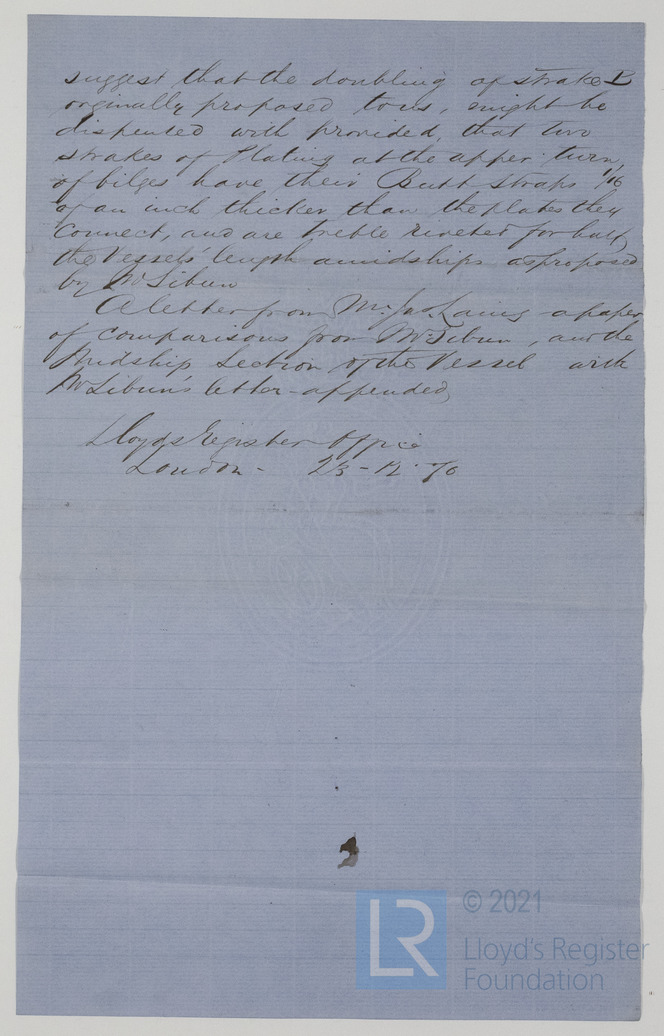 suggest that the doubling of strake B
originally proposed to us, might be
dispensed with provided, that two
strakes of Plating at the upper turn,
of bilges have their Butt Straps 1/16
of an inch thicker than the plates they
Connect, and are treble riveted for half
the Vessels' length amidships as proposed
by Mr Tibun
A letter from Mr. Jas. Laing - a paper
of comparisons from Mr Tibun, and the
Midship Section of the Vessel with
Mr Tibun's letter - appended,
Lloyds Register Office
London - 23 - 12 - 70
© 2021
LR
Lloyd's Register
Foundation